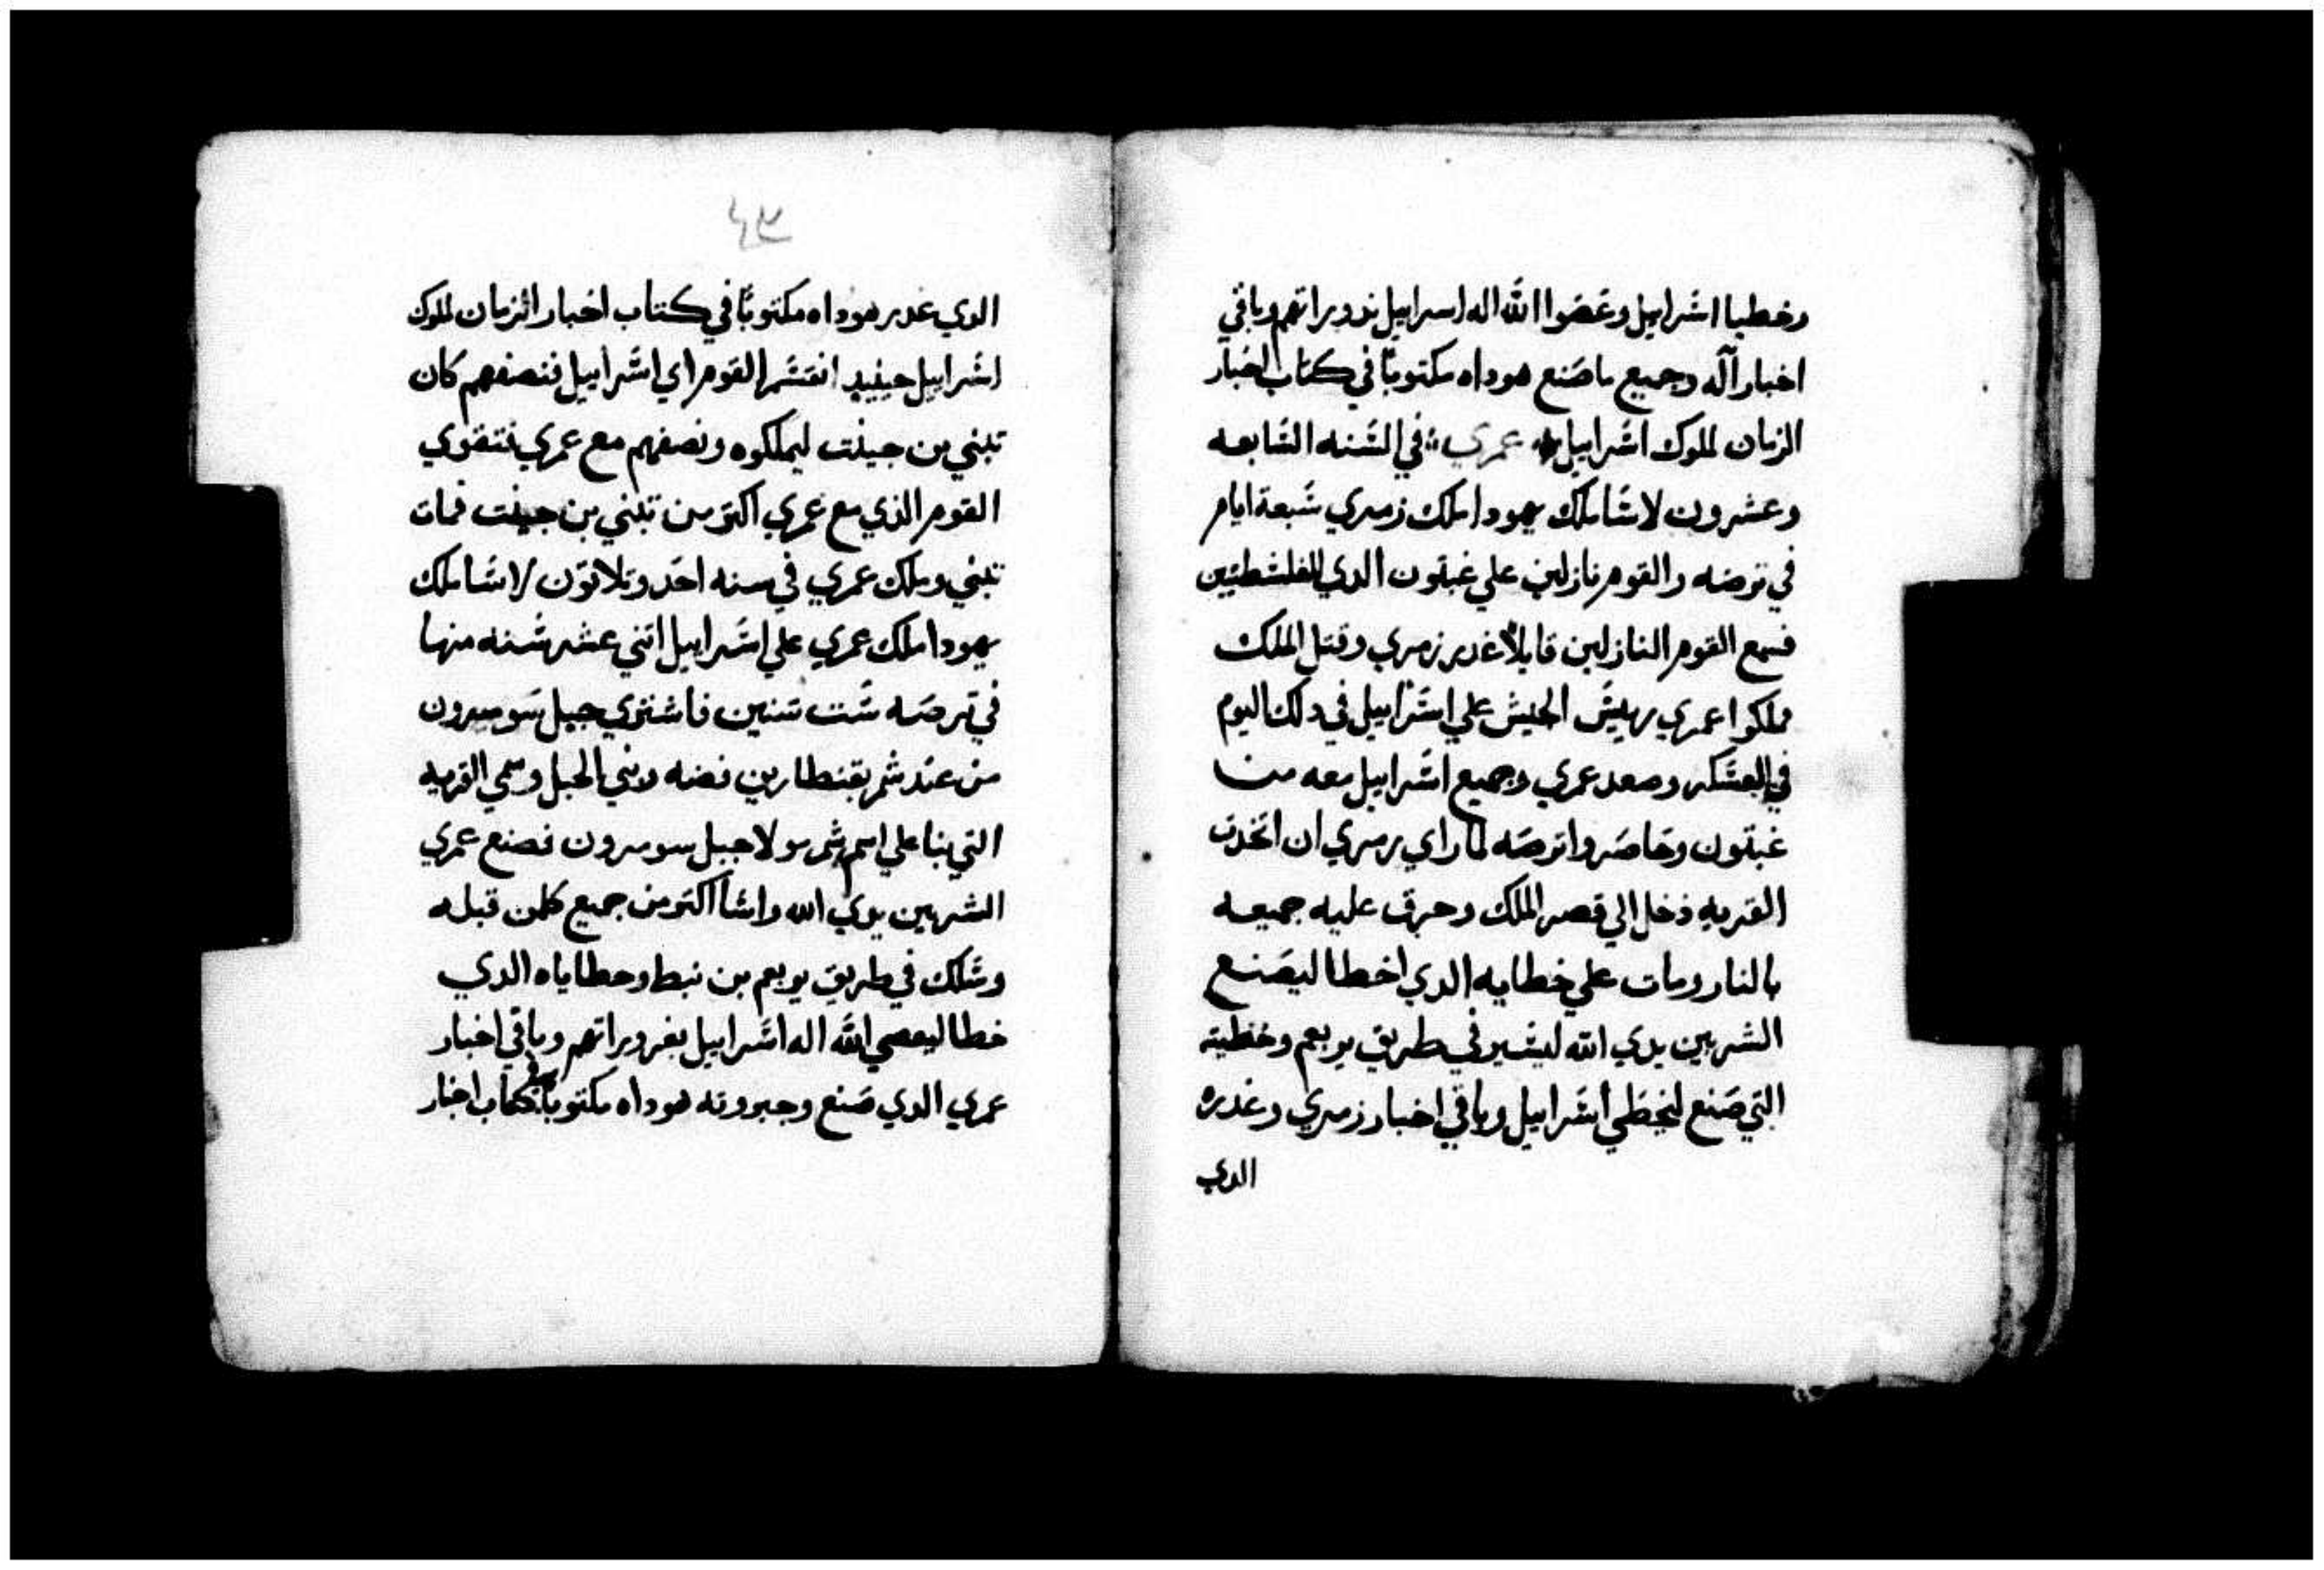 وخطيا اشرابيل وغضوا الله اله اسرابيل بدوراتهم وباقي
اخبار آله وجميع ما صنع هوداه مكتوبًا في كتاب اخبار
الزمان لملوك اشرابيل عمري في السنه السابعه
وعشرون لاشا ملك يهودا ملك زمري شبعة ايام
في ترصه والقوم نازلين علي غبتون الدي للفلشطيين
فسمع القوم النازلين قايلًا غدر زمري وقتل الملك
فملكوا عمري رييش الجيش علي اشرابيل في دلك اليوم
في العشكر وصعد عمري وجميع اشرابيل معه من
غبتون وحاصروا ترصه لما راي زمري ان اتخدت
القريه دخل الي قصر الملك وحرق عليه جميعه
بالنار ومات علي خطايه الدي اخطا ليصنع
الشر بين يدي الله ليشير في طريق يربعم وخطيته
التي صنع ليخطي اشرابيل وباقي اخبار زمري وغدره
الدي
٤٣
الدي غدر هوداه مكتوبًا في كتاب اخبار الزمان لملوك
اشرابيل حينيد انقشم القوم اي اشرابيل فنصفهم كان
تبني بن جينت ليملكوه ونصفهم مع عمري فتقوي
القوم الذي مع عمري اكتر من تبني بن جينت فمات
تبني وملك عمري في سنه احد وتلاتون لاشا ملك
يهودا ملك عمري علي اشرابيل اتني عشر شنه منها
في ترصه شت شنين فاشتري جبل شومرون
من عند شمر بقنطارين فضه وبني الجبل وسمي القريه
التي بنا علي اسم شمر مولا جبل سومرون فصنع عمري
الشر بين يدي الله واشا اكتر من جميع كلمن قبله
وشلك في طريق يربعم بن نبط وخطاياه الدي
خطا ليعصي الله اله اشرابيل بغروراتهم وباقي اخبار
عمري الدي صنع وجبروته هوداه مكتوبًا في كتاب اخبار